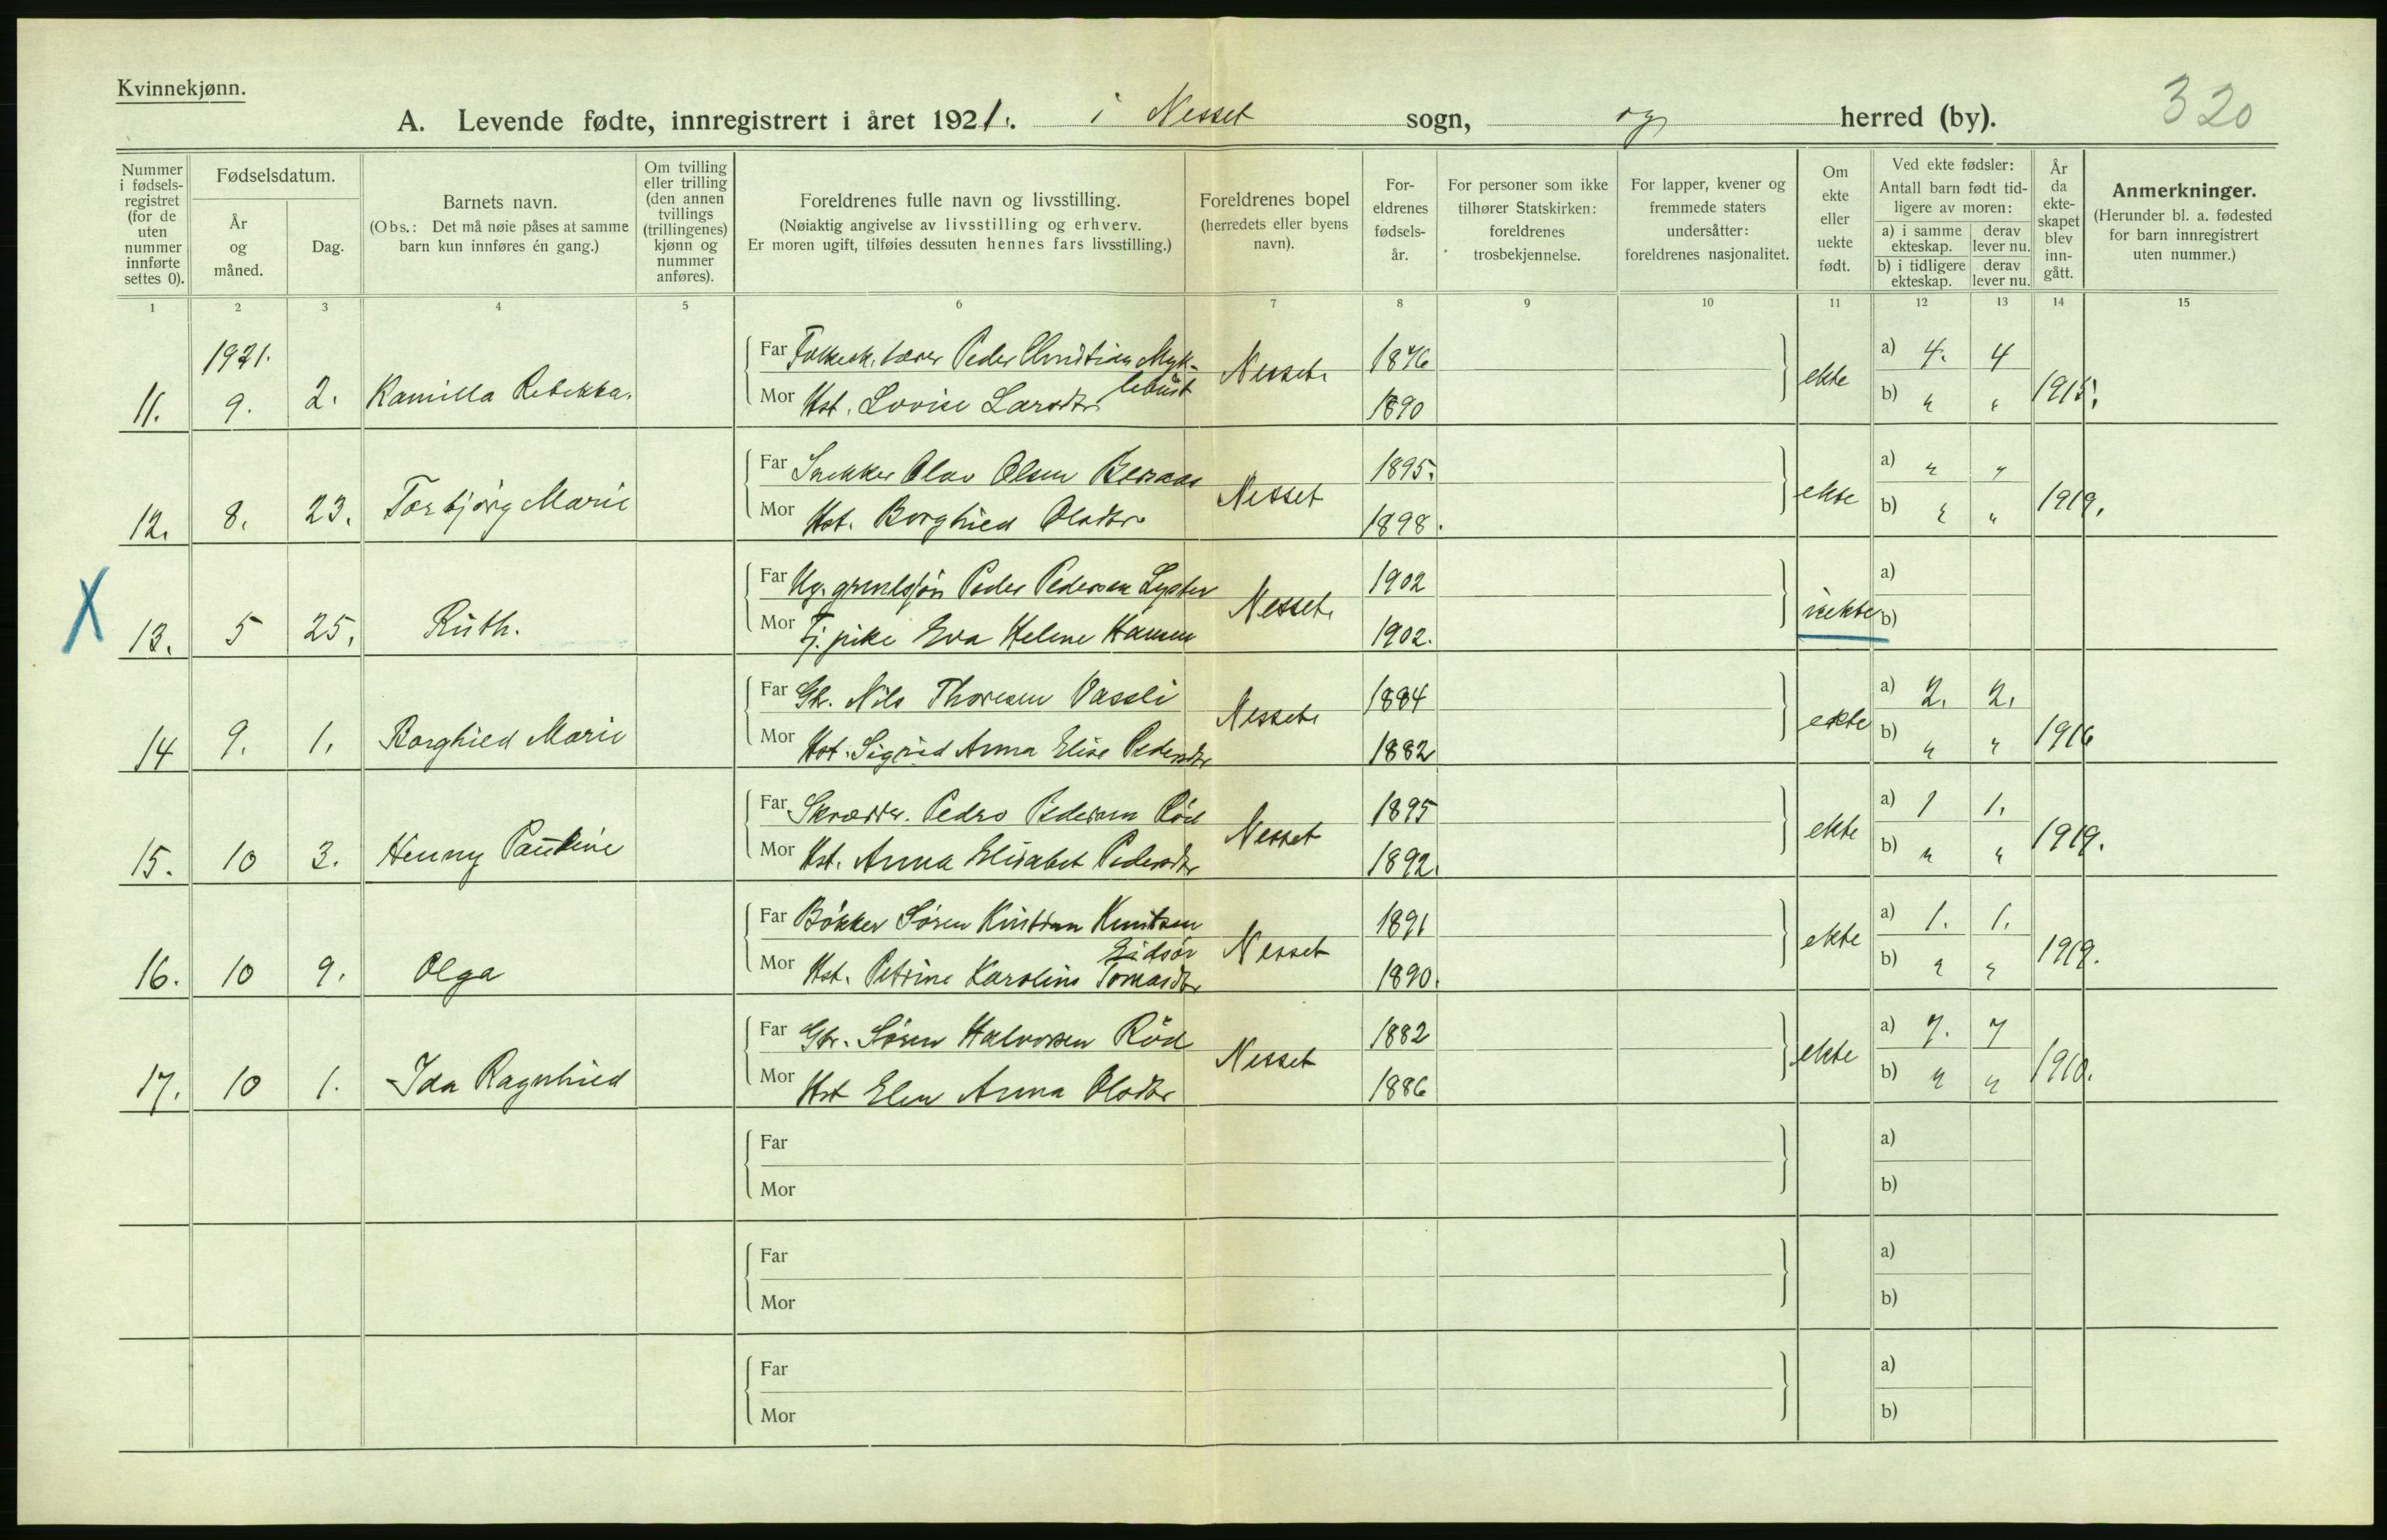 Kvinnekjønn.
320
A. Levende fødte, innregistrert i året 1921. i Nesset sogn, og herred (by).
Nummer i fødsels-registret (for de uten nummer innførte settes 0).
Fødselsdatum.
År og måned.
Dag.
Barnets navn.
(Obs.: Det må nøie påses at samme barn kun innføres én gang.)
Om tvilling eller trilling (den annen tvillings (trillingenes) kjønn og nummer anføres).
Foreldrenes fulle navn og livsstilling.
(Nøiaktig angivelse av livsstilling og erhverv. Er moren ugift, tilføies dessuten hennes fars livsstilling.)
Foreldrenes bopel (herredets eller byens navn).
For-eldrenes fødsels-år.
For personer som ikke tilhører Statskirken: foreldrenes trosbekjennelse.
For lapper, kvener og fremmede staters undersåtter: foreldrenes nasjonalitet.
Om ekte eller uekte født.
Ved ekte fødsler:
Antall barn født tid-ligere av moren:
a) i samme ekteskap. derav lever nu.
b) i tidligere ekteskap. derav lever nu.
År da ekte-skapet blev inn-gått.
Anmerkninger.
(Herunder bl. a. fødested for barn innregistrert uten nummer.)
1 2 3 4 5 6 7 8 9 10 11 12 13 14 15
1921.
11. 9. 2. Kamilla Rebekka.
Far Folkesk. lærer Peder Christian Myk-lebust Nesset. 1876
Mor Hst. Lovise Larsdtr. 1890
ekte a) 4. 4 b) " " 1915.
12. 8. 23. Torbjörg Marie
Far Snekker Olav Olsen Beraas Nesset 1895.
Mor Hst. Borghild Olsdtr. 1898.
ekte a) " " b) " " 1919.
X 13. 5 25. Ruth.
Far Ug. Peder Pedersen Nesset. 1902
Mor Tj. pike Eva Helene Hansen 1902.
uekte a) b)
14 9. 1. Borghild Marie
Far Gb. Nils Thoresen Vassli Nesset. 1884
Mor Hst. Sigrid Anna Elise Pedersdtr 1882
ekte a) 2. 2. b) " " 1916
15. 10 3. Henny Pauline
Far Skrædder. Pedro Pedersen Röd Nesset 1895
Mor Hst. Anna Elisabet Pedersdtr 1892.
ekte a) 1 1. b) " " 1919.
16. 10 9. Olga
Far Bökker Sören Kristian Knutsen Eidsör Nesset 1891
Mor Hst. Petrine Karoline Tomasdtr 1890.
ekte a) 1. 1. b) " " 1919.
17. 10 1. Ida Ragnhild
Far Gbr. Sören Halvorsen Röd Nesset 1882
Mor Hst Elen Anna Olsdtr 1886
ekte a) 7. 7 b) " " 1910.
Far a)
Mor b)
Far a)
Mor b)
Far a)
Mor b)